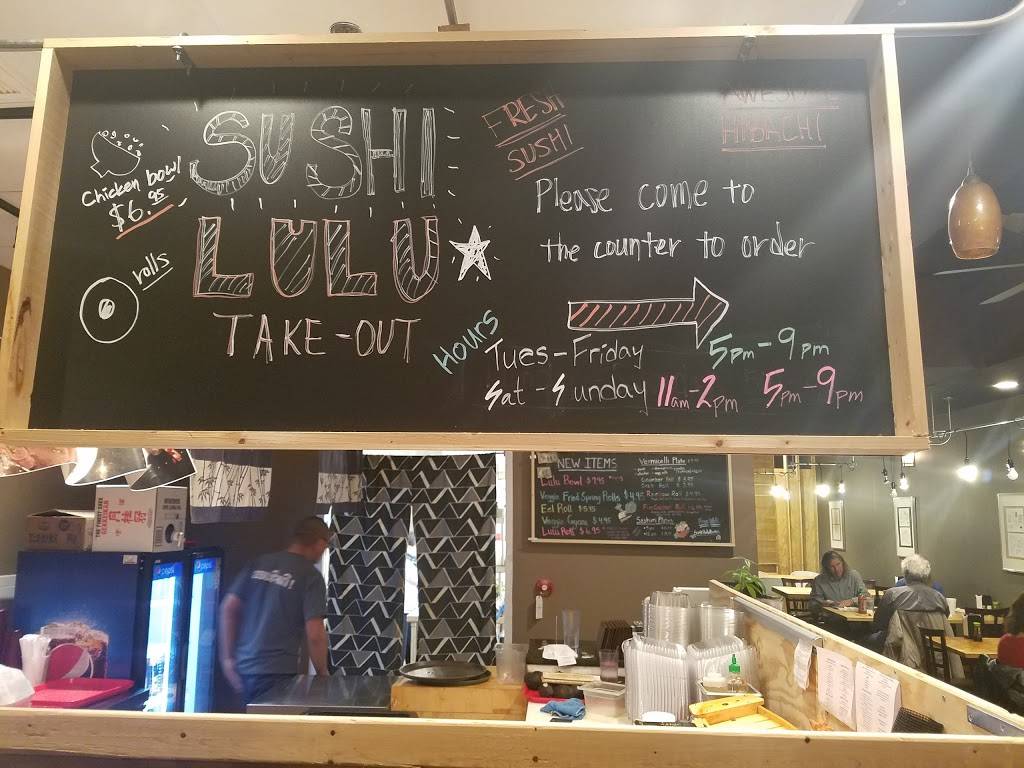 SUSHI
LULU
TAKE-OUT
Chicken bowl
$6.95
rolls
FRESH
SUSHI
AWESOME
HIBACHI
Please come to
the counter to order
Hours
Tues-Friday 5pm-9pm
Sat-Sunday 11am-2pm 5pm-9pm
NEW ITEMS
Lulu Bowl $7.95
Veggie Fried Spring Rolls $4.95
Eel Roll $5.95
Veggie Gyoza $4.95
Lulu Roll $6.95
Vermicelli Plate
Cucumber Roll
Rainbow Roll
Sashimi
pepsi
pepsi